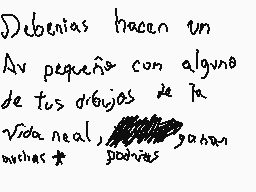 Deberias hacer un
Av pequeño con alguno
de tus dibujos de la
vida real, ganar
muchas * podrias